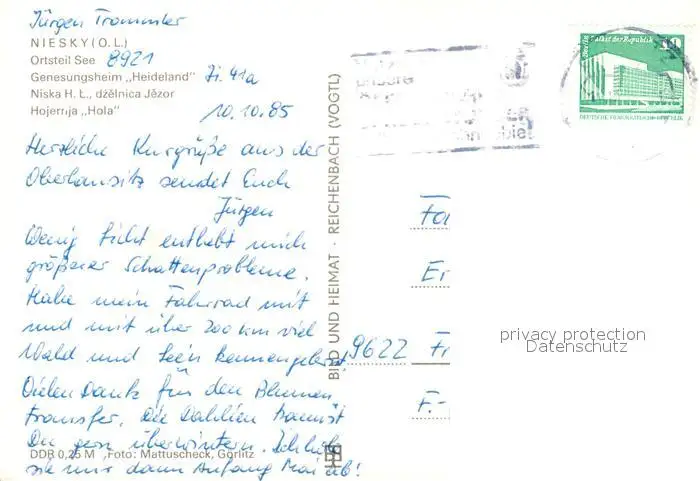 Jürgen Trommler
NIESKY (O. L.)
Ortsteil See 8921
Genesungsheim „Heideland" Zi. 41a
Niska H. Ł., dźělnica Jězor
Hojernja „Hola"
10.10.85
Herzliche Kurgrüße aus der
Oberlausitz sendet Euch
Jürgen
Wenig Licht enthebt mich
größerer Schattenprobleme.
Habe mein Fahrrad mit
und mit über 200 km viel
Wald und Seen kennengelernt
Vielen Dank für den Blumen
transfer. Die Dahlien kannst
Du gern überwintern. Ich hole
sie mir dann Anfang Mai ab!
DDR 0,25 M Foto: Mattuscheck, Görlitz
BILD UND HEIMAT · REICHENBACH (VOGTL)
unsere
Berlin, Palast der Republik
DEUTSCHE DEMOKRATISCHE REPUBLIK
Fa
Er
9622 Fr
F.-
privacy protection
Datenschutz